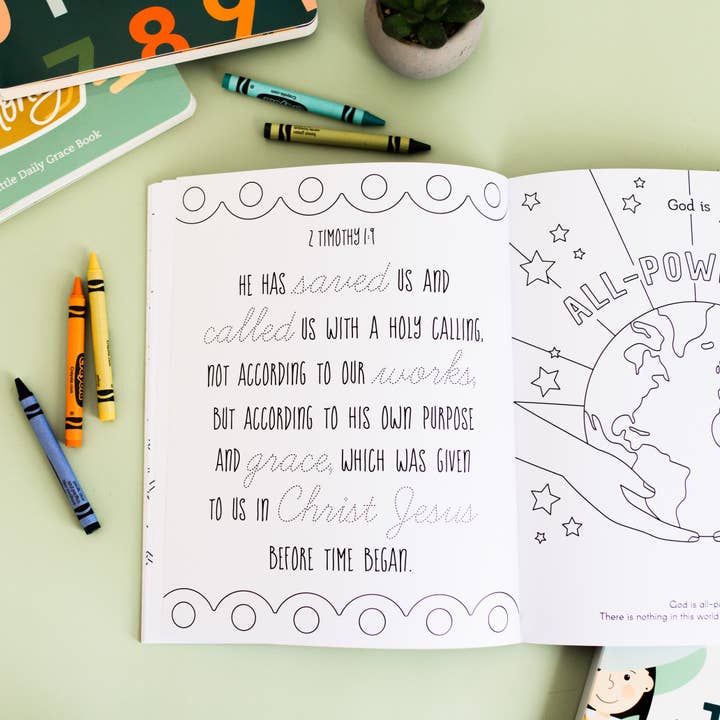 7 8 9
Little Daily Grace Book
Crayola
Crayola
2 TIMOTHY 1:9
HE HAS saved US AND
called US WITH A HOLY CALLING,
NOT ACCORDING TO OUR works,
BUT ACCORDING TO HIS OWN PURPOSE
AND grace, WHICH WAS GIVEN
TO US IN Christ Jesus
BEFORE TIME BEGAN.
God is
ALL-POW
God is all-po
There is nothing in this world